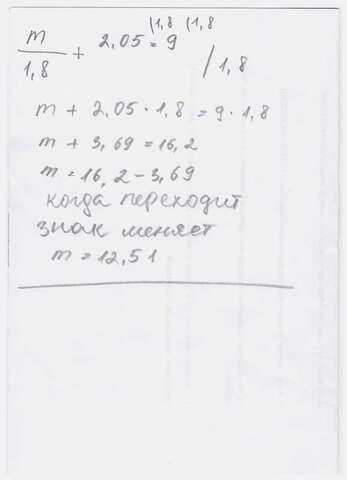 m/1,8 + 2,05 = 9 /1,8
(1,8 (1,8
m + 2,05 · 1,8 = 9 · 1,8
m + 3,69 = 16,2
m = 16,2 - 3,69
когда переходит
знак меняет
m = 12,51